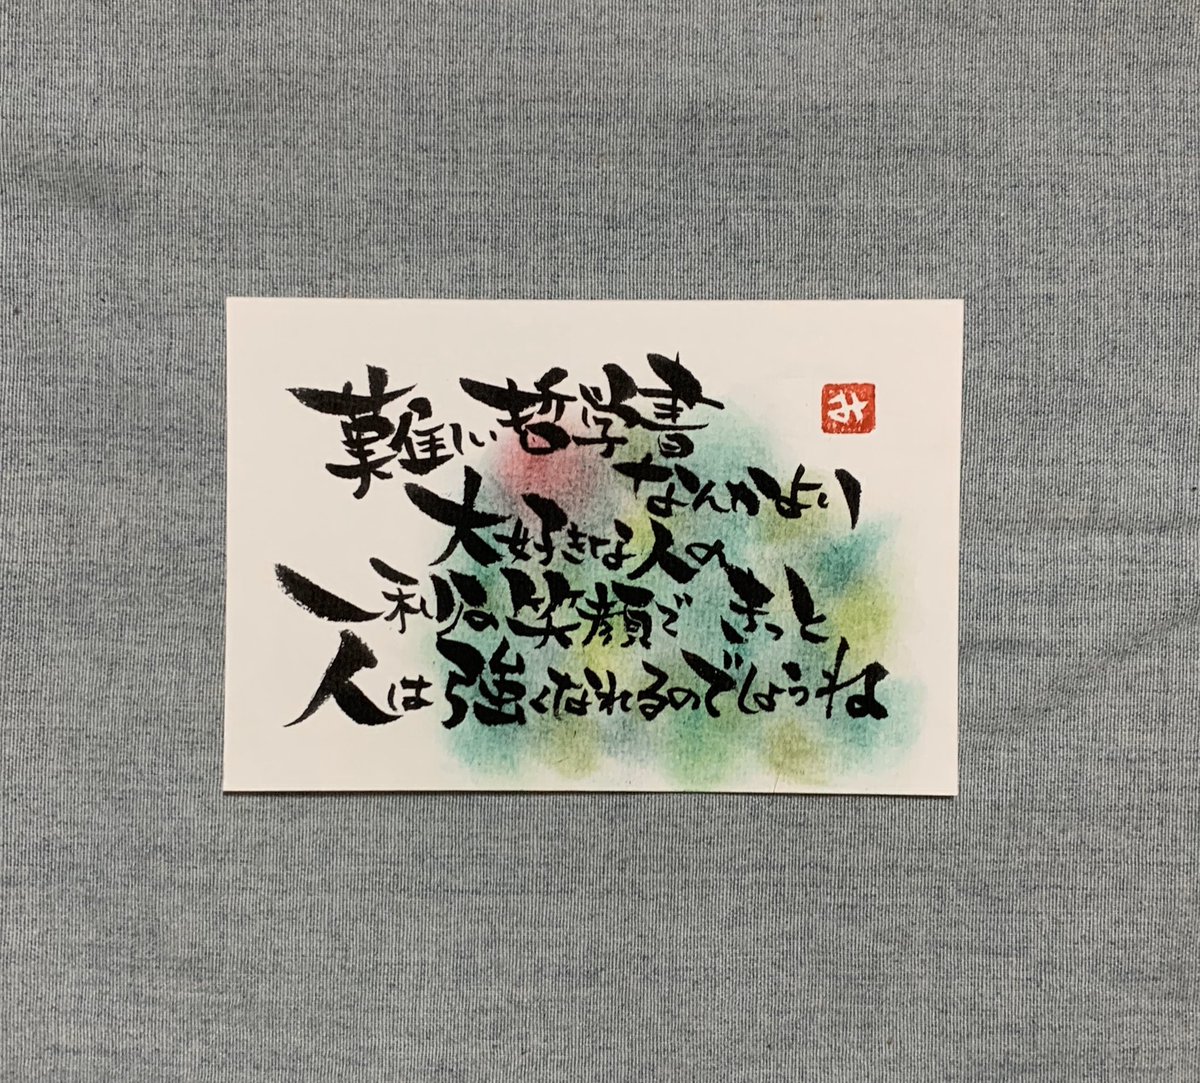 難しい哲学書
なんかより
大好きな人の
一利な笑顔で きっと
人は強くなれるのでしょうね